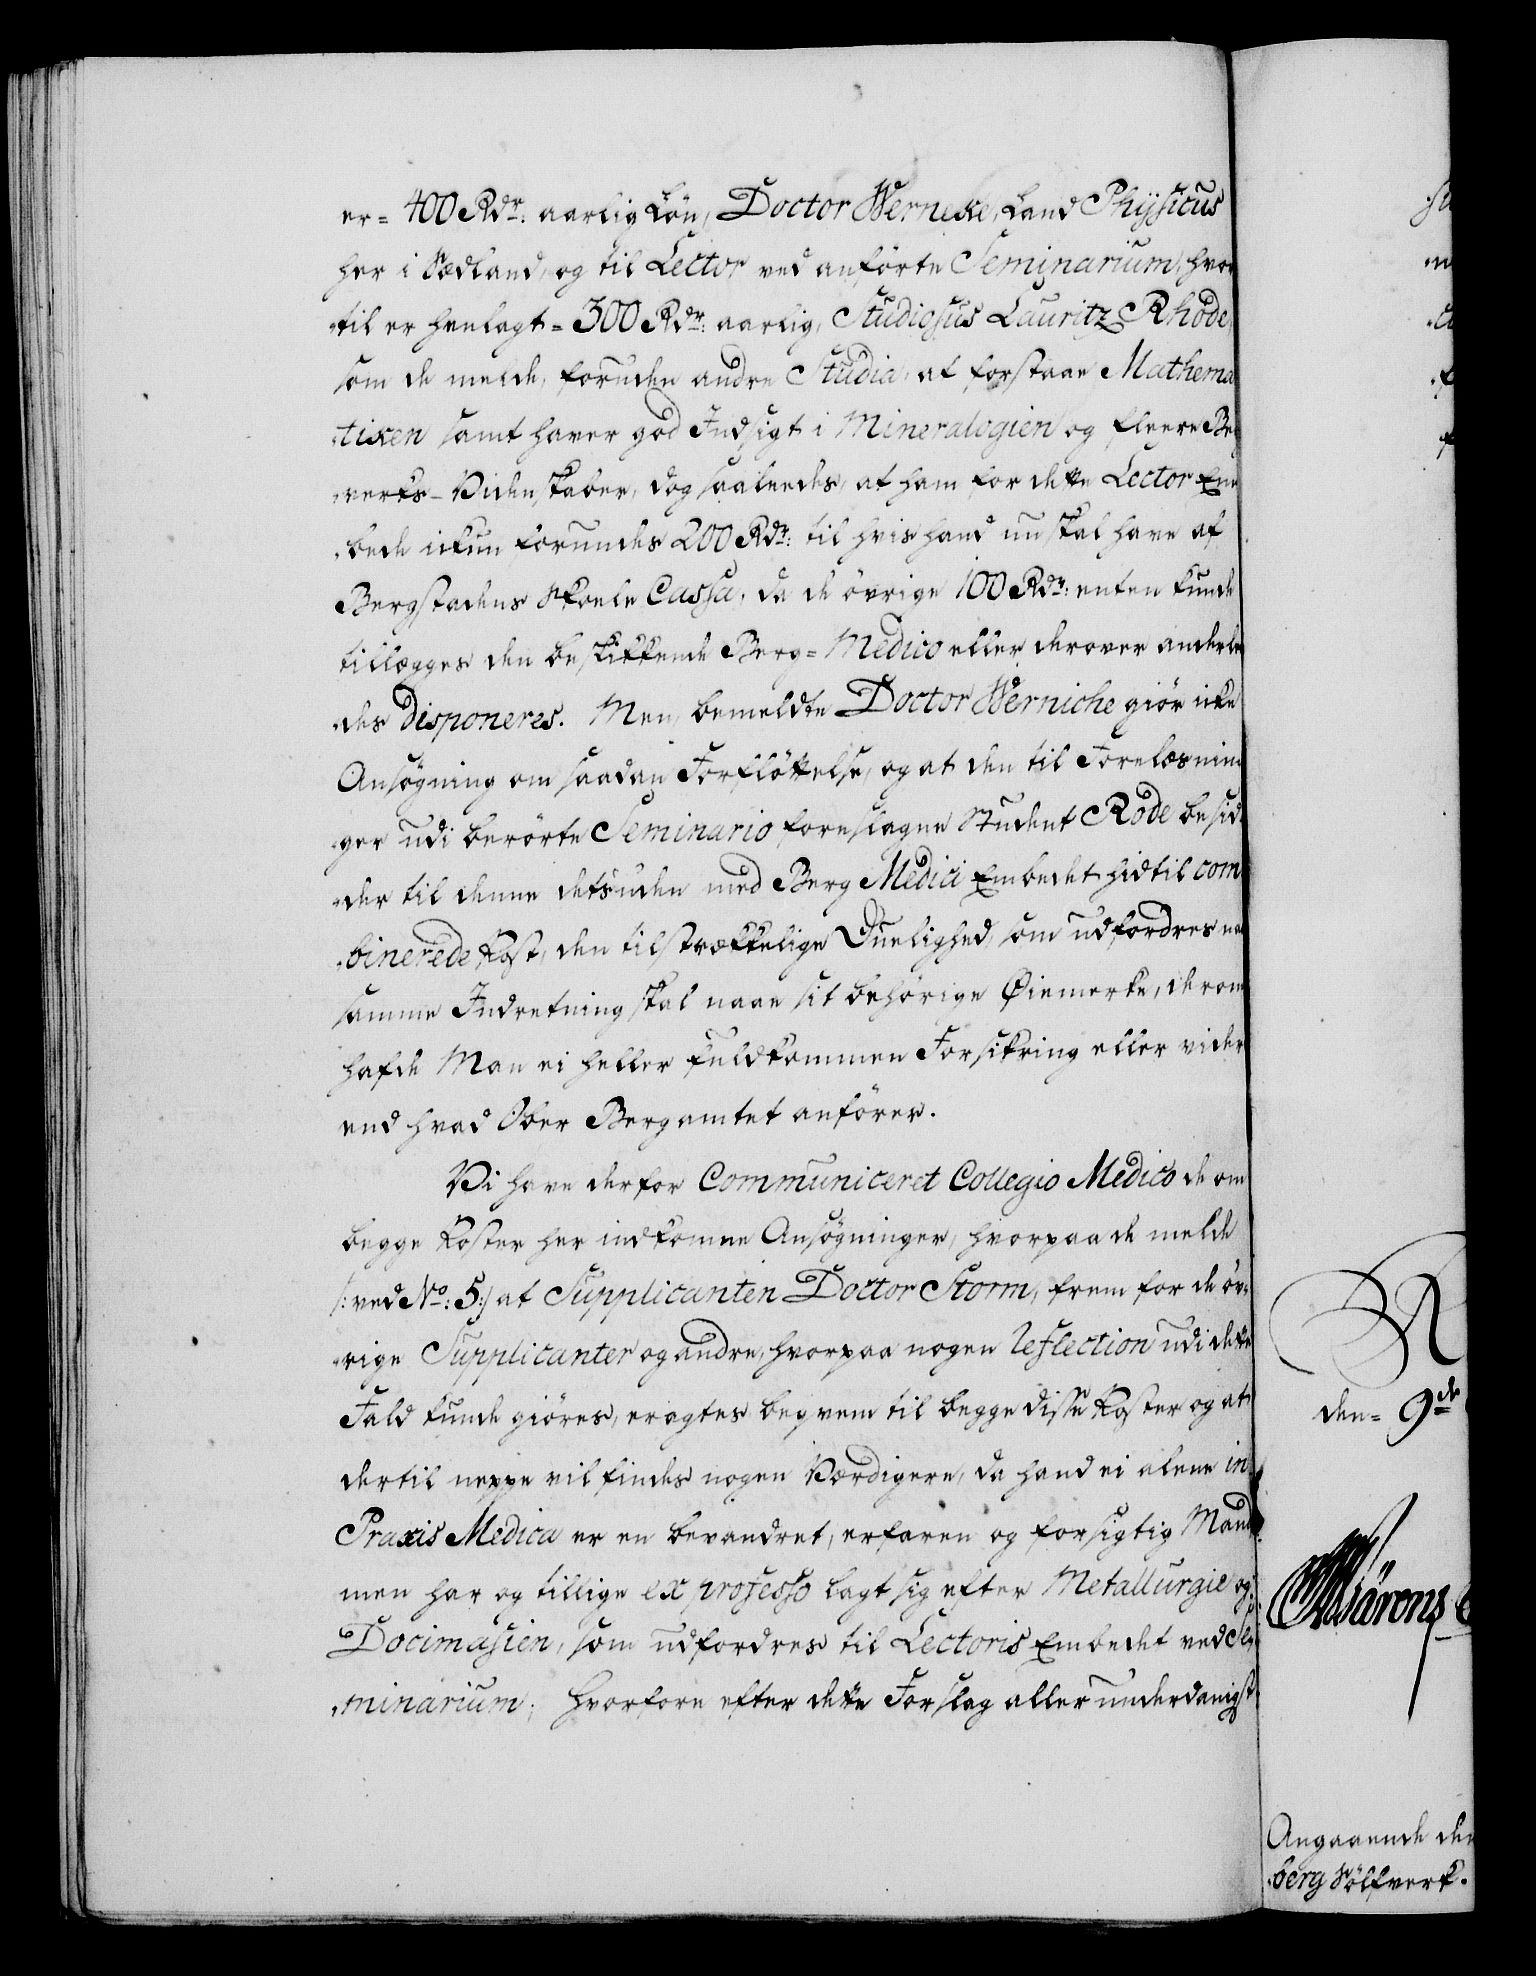 er = 400 Rdr: aarlig Løn, Doctor Werneke, Land Physicus
her i Sædland, og til Lector ved anførte Seminarium, hvor
-til er henlagt = 300 Rdr: aarlig, Studiosus Lauritz Rhode,
som de melde, foruden andre Studia, at forstaae Mathema
-tiken samt haver god Indsigt i Mineralogien og fleere Ber
-verks-Videnskaber, dog saaledes, at ham for dette Lector Em
-bede ickun forundes 200 Rdr: til hvis hand nu skal have af
Bergstadens Skoele Cassa, da de øvrige 100 Rdr: enten kunde
tillægges den beskikkende Berg-Medico eller derover anderle
-des disponeres. Men, bemeldte Doctor Werniche giør icke
Ansøgning om saadan Forflöttelse, og at den til Forelæsnin
-ger udi berørte Seminario foreslagne Student Rode besid
-der til denne detsuden med Berg Medici Embedet hidtil com
-binerede Post, den tilstrækkelige Duelighed, som udfordres naar
samme Indretning skal naae sit behörige Øiemerke, derom
hafde Man ei heller fuldkommen Forsikring eller vider
end hvad Ober Bergamtet anfører.
Vi have derfor Communiceret Collegio Medico de om
begge Poster her indkomne Ansøgninger, hvorpaa de melde
/: ved No: 5:/ at Supplicanten Doctor Storm, frem for de öv-
-rige Supplicanter og andre, hvorpaa nogen Reflection udi dette
Fald kunde giöres, eragtes beqvem til begge disse Poster og at
dertil neppe vil findes nogen Værdigere, da hand ei alene in
Praxis Medica er en bevandret, erfaren og forsigtig Mand
men har og tillige ex professo lagt sig efter Metallurgie og
Docimasien, som udfordres til Lectoris Embedet ved Se-
-minarium; hvorfore efter dette Forslag allerunderdanigst
den = 9de
Angaaende de
-berg Sølfverk.